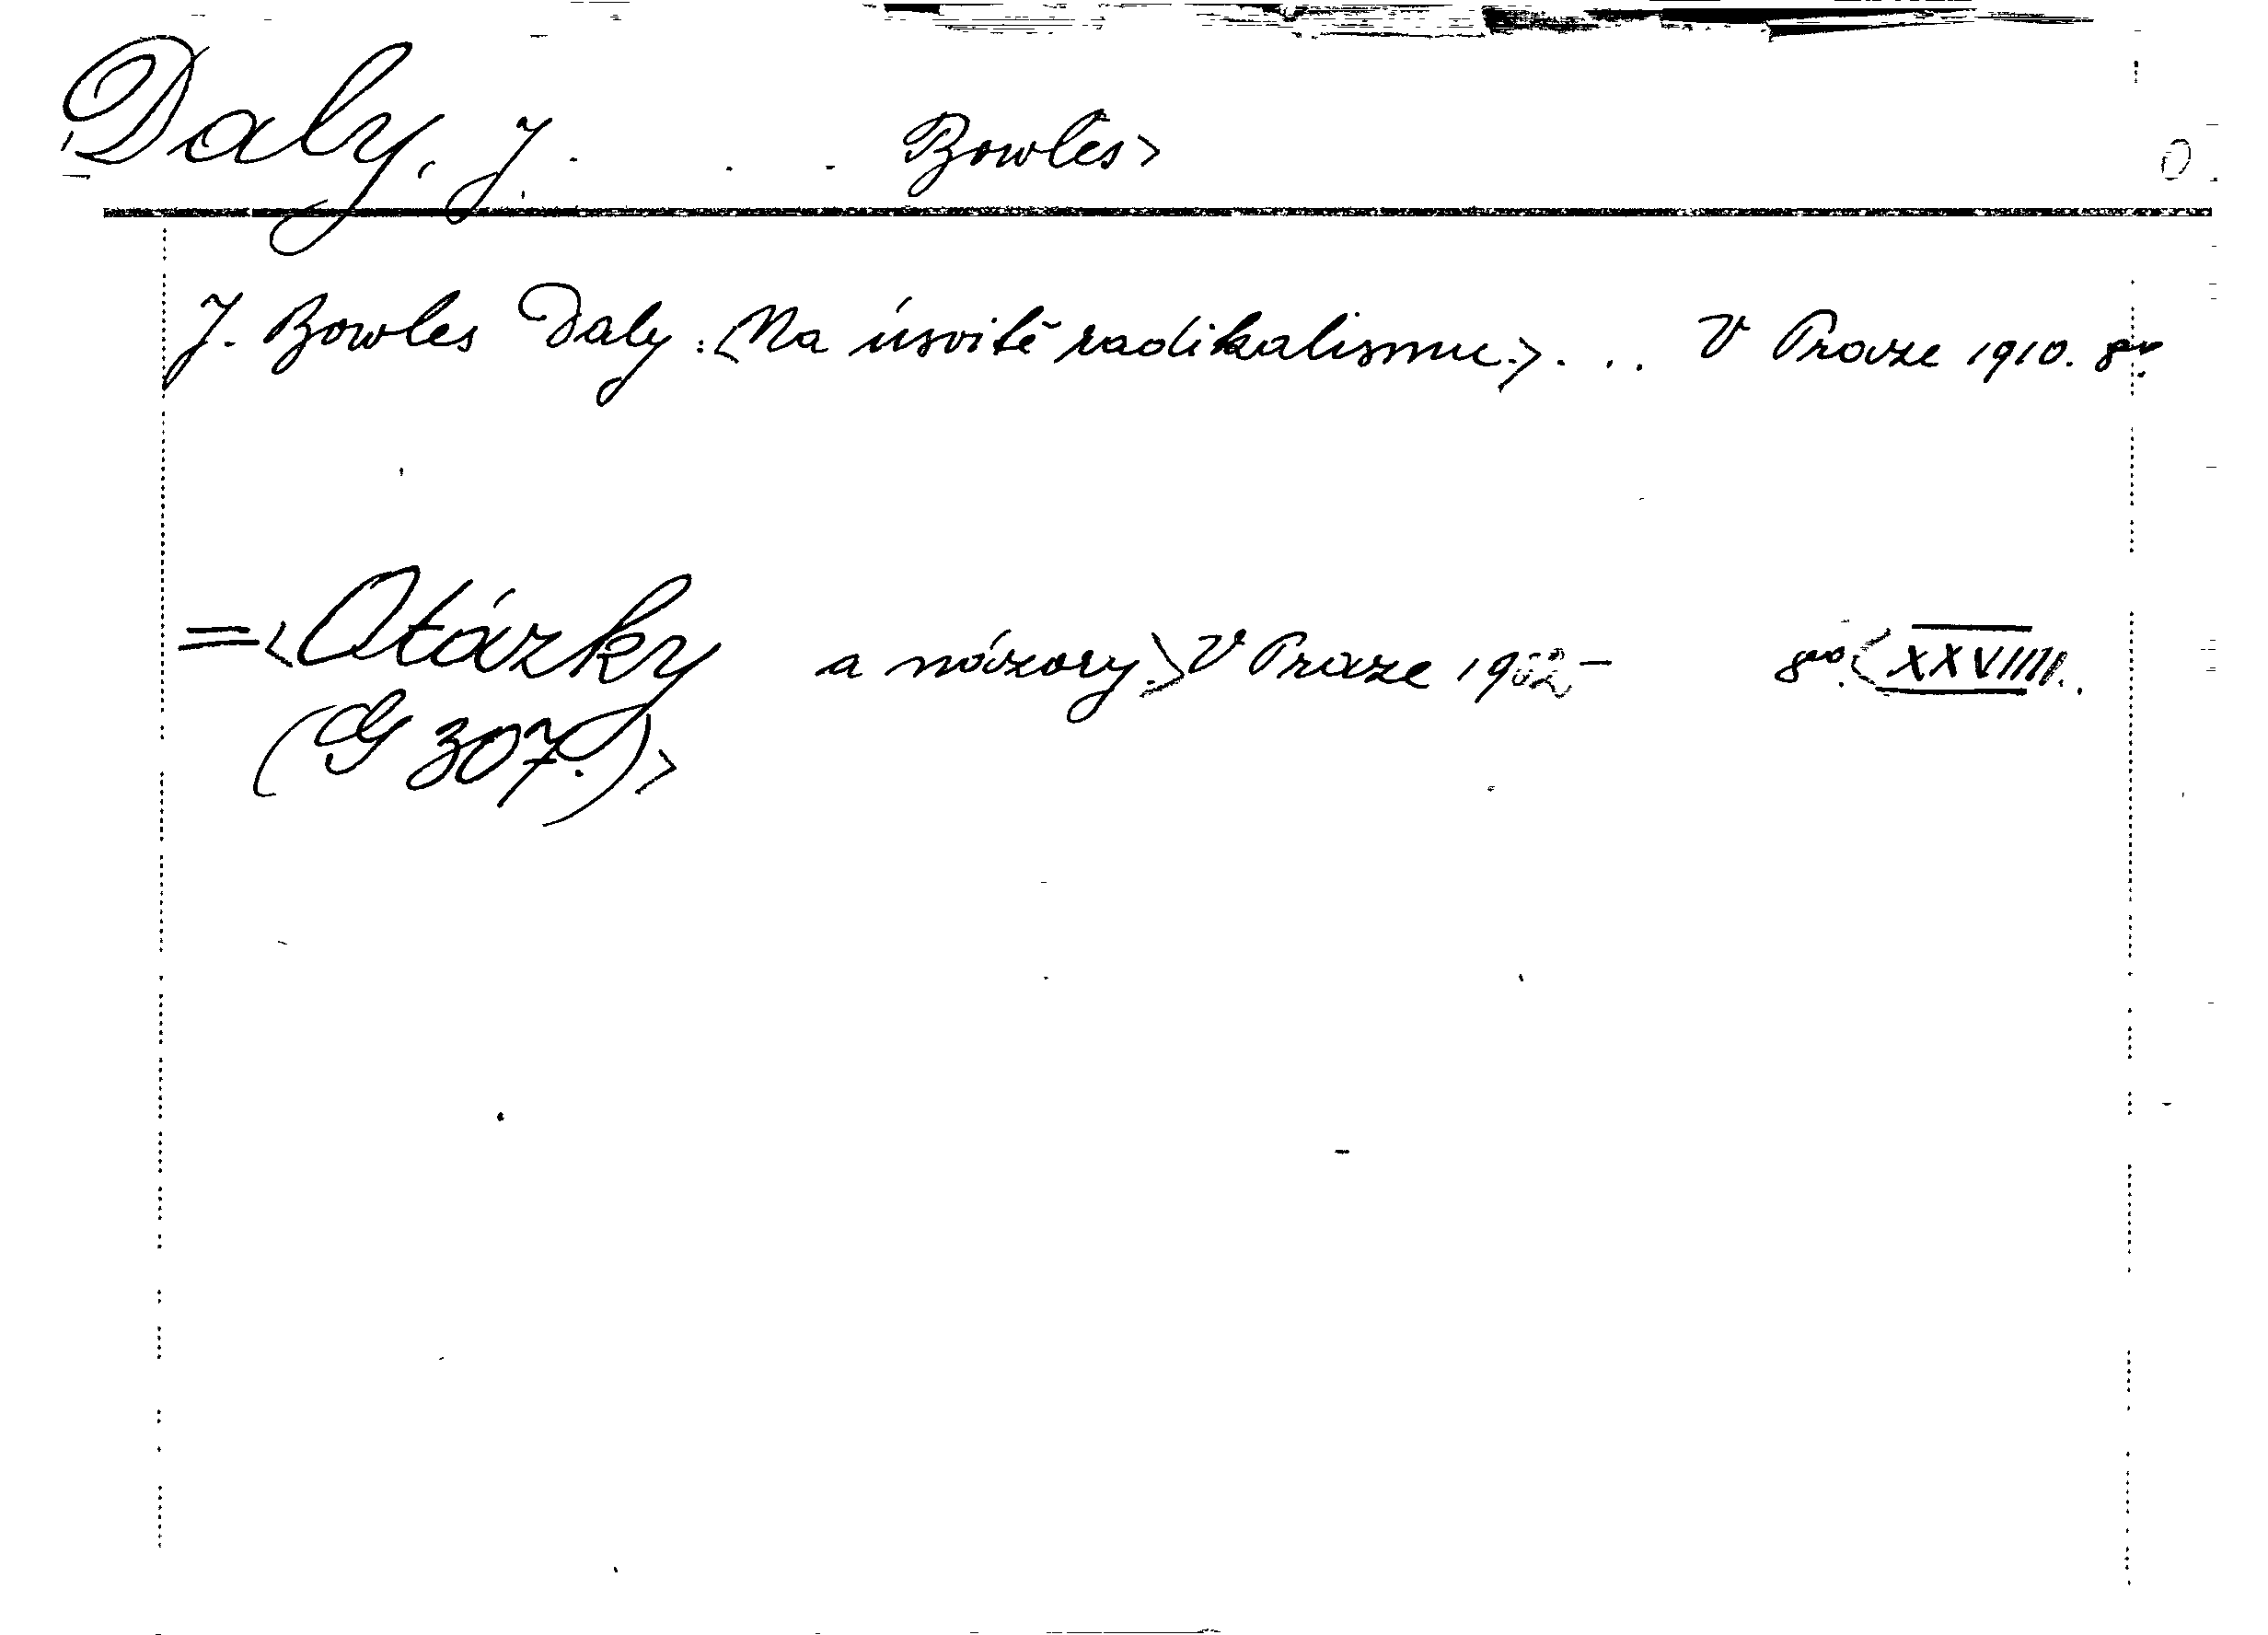 Daly, J. . . . Bowles>
J. Bowles Daly: <Na úsvitě radikalismu.> ... V Praze 1910. 8º.
=<Otázky a názory.> V Praze 1902- 8vo. <XXVIIII.
(G 307.)>